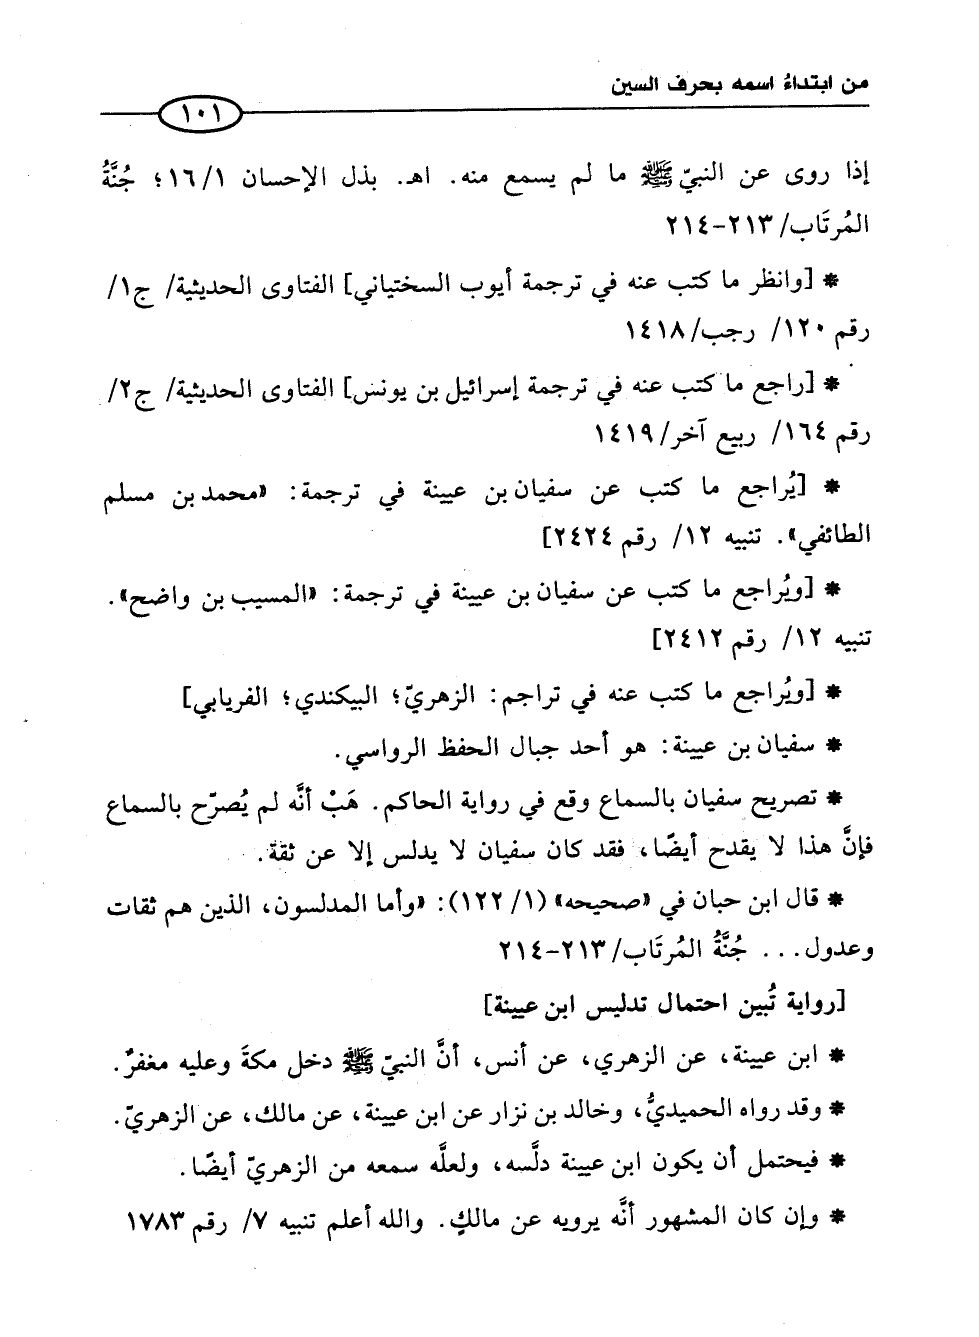 من ابتداءُ اسمه بحرف السين
١٠١
إذا روى عن النبيّ ﷺ ما لم يسمع منه. اهـ. بذل الإحسان ١/ ١٦؛ جُنَّةُ
المُرتَاب/ ٢١٣-٢١٤
* [وانظر ما كتب عنه في ترجمة أيوب السختياني] الفتاوى الحديثية/ ج١/
رقم ١٢٠/ رجب/ ١٤١٨
* [راجع ما كتب عنه في ترجمة إسرائيل بن يونس] الفتاوى الحديثية/ ج٢/
رقم ١٦٤/ ربيع آخر/ ١٤١٩
* [يُراجع ما كتب عن سفيان بن عيينة في ترجمة: «محمد بن مسلم
الطائفي». تنبيه ١٢/ رقم ٢٤٢٤]
* [ويُراجع ما كتب عن سفيان بن عيينة في ترجمة: «المسيب بن واضح».
تنبيه ١٢/ رقم ٢٤١٢]
* [ويُراجع ما كتب عنه في تراجم: الزهريّ؛ البيكندي؛ الفريابي]
* سفيان بن عيينة: هو أحد جبال الحفظ الرواسي.
* تصريح سفيان بالسماع وقع في رواية الحاكم. هَبْ أنَّه لم يُصرّح بالسماع
فإنَّ هذا لا يقدح أيضًا، فقد كان سفيان لا يدلس إلا عن ثقة.
* قال ابن حبان في «صحيحه» (١/ ١٢٢): «وأما المدلسون، الذين هم ثقات
وعدول... جُنَّةُ المُرتَاب/ ٢١٣-٢١٤
[رواية تُبين احتمال تدليس ابن عيينة]
* ابن عيينة، عن الزهري، عن أنس، أنَّ النبيّ ﷺ دخل مكةَ وعليه مغفرٌ.
* وقد رواه الحميديُّ، وخالد بن نزار عن ابن عيينة، عن مالك، عن الزهريّ.
* فيحتمل أن يكون ابن عيينة دلَّسه، ولعلَّه سمعه من الزهريّ أيضًا.
* وإن كان المشهور أنَّه يرويه عن مالكٍ. والله أعلم تنبيه ٧/ رقم ١٧٨٣